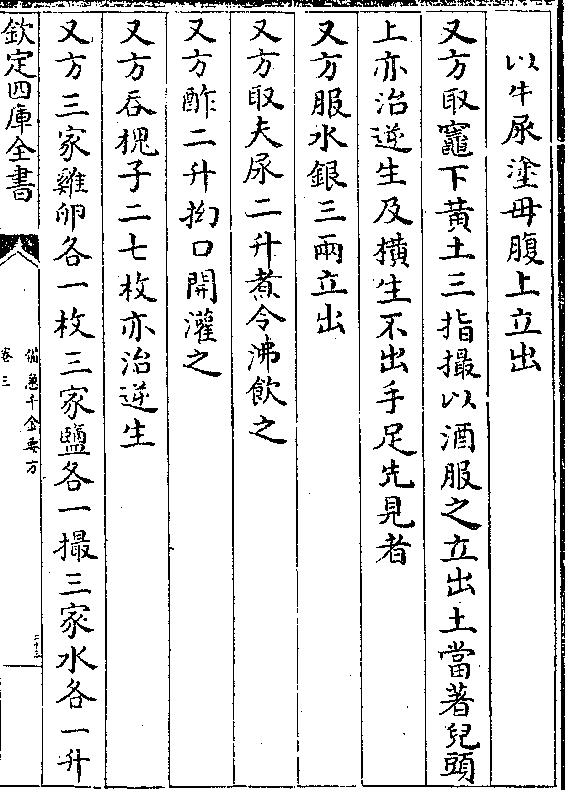 以牛尿塗母腹上立出
又方取竈下黄土三指撮以酒服之立出土當著兒頭
上亦治逆生及橫生不出手足先見者
又方服水銀三兩立出
又方取夫尿二升煮令沸飲之
又方酢二升拗口開灌之
又方吞槐子二七枚亦治逆生
又方三家雞卵各一枚三家鹽各一撮三家水各一升
欽定四庫全書
備急千金要方
卷三